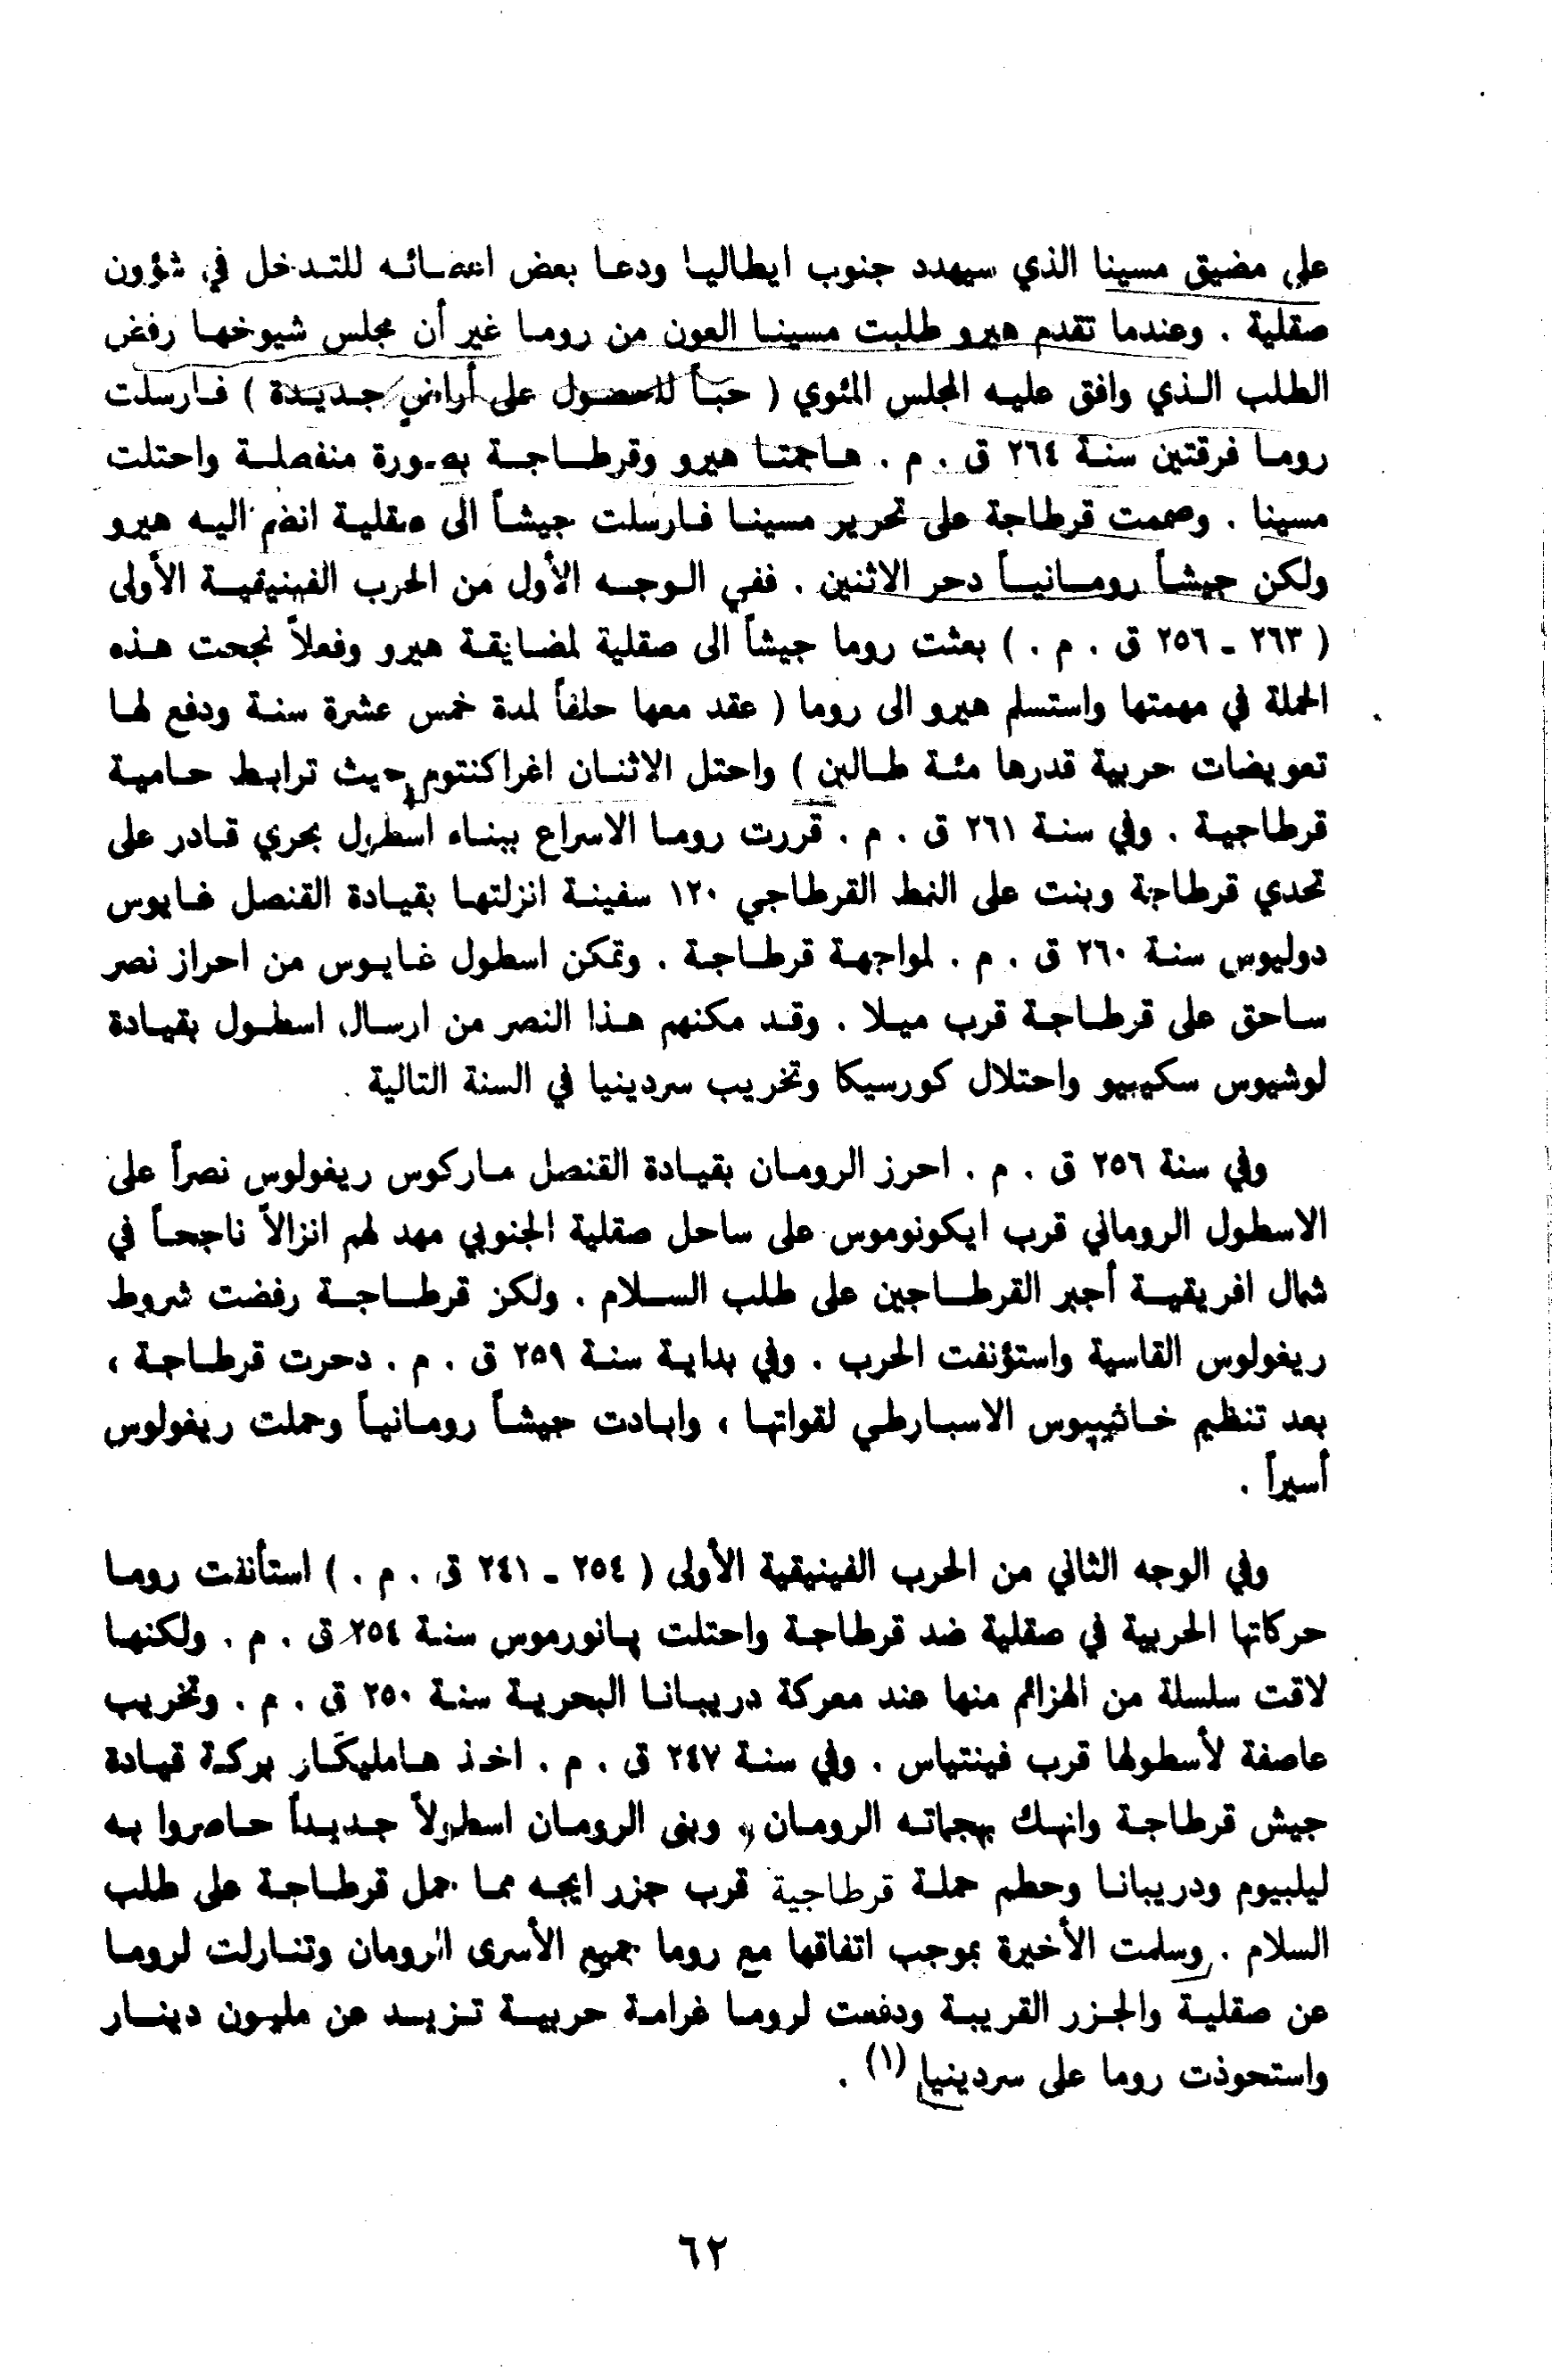 على مضيق مسينا الذي سيهدد جنوب ايطاليا ودعا بعض اعضائه للتدخل في شؤون
صقلية . وعندما تقدم هيرو طلبت مسينا العون من روما غير أن مجلس شيوخها رفض
الطلب الذي وافق عليه المجلس المئوي ( حباً للحصول على أراضٍ جديدة ) فارسلت
روما فرقتين سنة ٢٦٤ ق . م . هاجمتا هيرو وقرطاجة بصورة منفصلة واحتلت
مسينا . وصممت قرطاجة على تحرير مسينا فارسلت جيشاً الى صقلية انضم اليه هيرو
ولكن جيشاً رومانياً دحر الاثنين . ففي الوجه الأول من الحرب الفينيقية الأولى
( ٢٦٣ - ٢٥٦ ق . م . ) بعثت روما جيشاً الى صقلية لمضايقة هيرو وفعلاً نجحت هذه
الحملة في مهمتها واستسلم هيرو الى روما ( عقد معها حلفاً لمدة خمس عشرة سنة ودفع لها
تعويضات حربية قدرها مئة طالبن ) واحتل الاثنان اغراكنتوم حيث ترابط حامية
قرطاجية . وفي سنة ٢٦١ ق . م . قررت روما الاسراع ببناء اسطول بحري قادر على
تحدي قرطاجة وبنت على النمط القرطاجي ١٢٠ سفينة انزلتها بقيادة القنصل غايوس
دوليوس سنة ٢٦٠ ق . م . لمواجهة قرطاجة . وتمكن اسطول غايوس من احراز نصر
ساحق على قرطاجة قرب ميلا . وقد مكنهم هذا النصر من ارسال اسطول بقيادة
لوشيوس سكيبيو واحتلال كورسيكا وتخريب سردينيا في السنة التالية .
وفي سنة ٢٥٦ ق . م . احرز الرومان بقيادة القنصل ماركوس ريغولوس نصراً على
الاسطول الروماني قرب ايكونوموس على ساحل صقلية الجنوبي مهد لهم انزالاً ناجحاً في
شمال افريقية أجبر القرطاجين على طلب السلام . ولكن قرطاجة رفضت شروط
ريغولوس القاسية واستؤنفت الحرب . وفي بداية سنة ٢٥٩ ق . م . دحرت قرطاجة ،
بعد تنظيم خاثيپوس الاسبارطي لقواتها ، وابادت جيشاً رومانياً وحملت ريغولوس
أسيراً .
وفي الوجه الثاني من الحرب الفينيقية الأولى ( ٢٥٤ - ٢٤١ ق . م . ) استأنفت روما
حركاتها الحربية في صقلية ضد قرطاجة واحتلت پانورموس سنة ٢٥٤ ق . م . ولكنها
لاقت سلسلة من الهزائم منها عند معركة دريبانا البحرية سنة ٢٥٠ ق . م . وتخريب
عاصفة لأسطولها قرب فينتياس . وفي سنة ٢٤٧ ق . م . اخذ هامليكار بركة قيادة
جيش قرطاجة وانهك بهجماته الرومان ، وبنى الرومان اسطولاً جديداً حاصروا به
ليلبيوم ودريبانا وحطم حملة قرطاجية قرب جزر ايجه مما حمل قرطاجة على طلب
السلام . وسلمت الأخيرة بموجب اتفاقها مع روما جميع الأسرى الرومان وتنازلت لروما
عن صقلية والجزر القريبة ودفعت لروما غرامة حربية تزيد عن مليون دينار
واستحوذت روما على سردينيا (١) .
٦٢